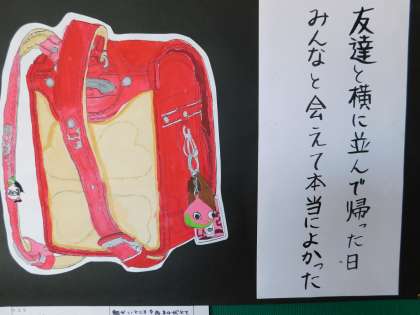 友達と横に並んで帰った日
みんなと会えて本当によかった